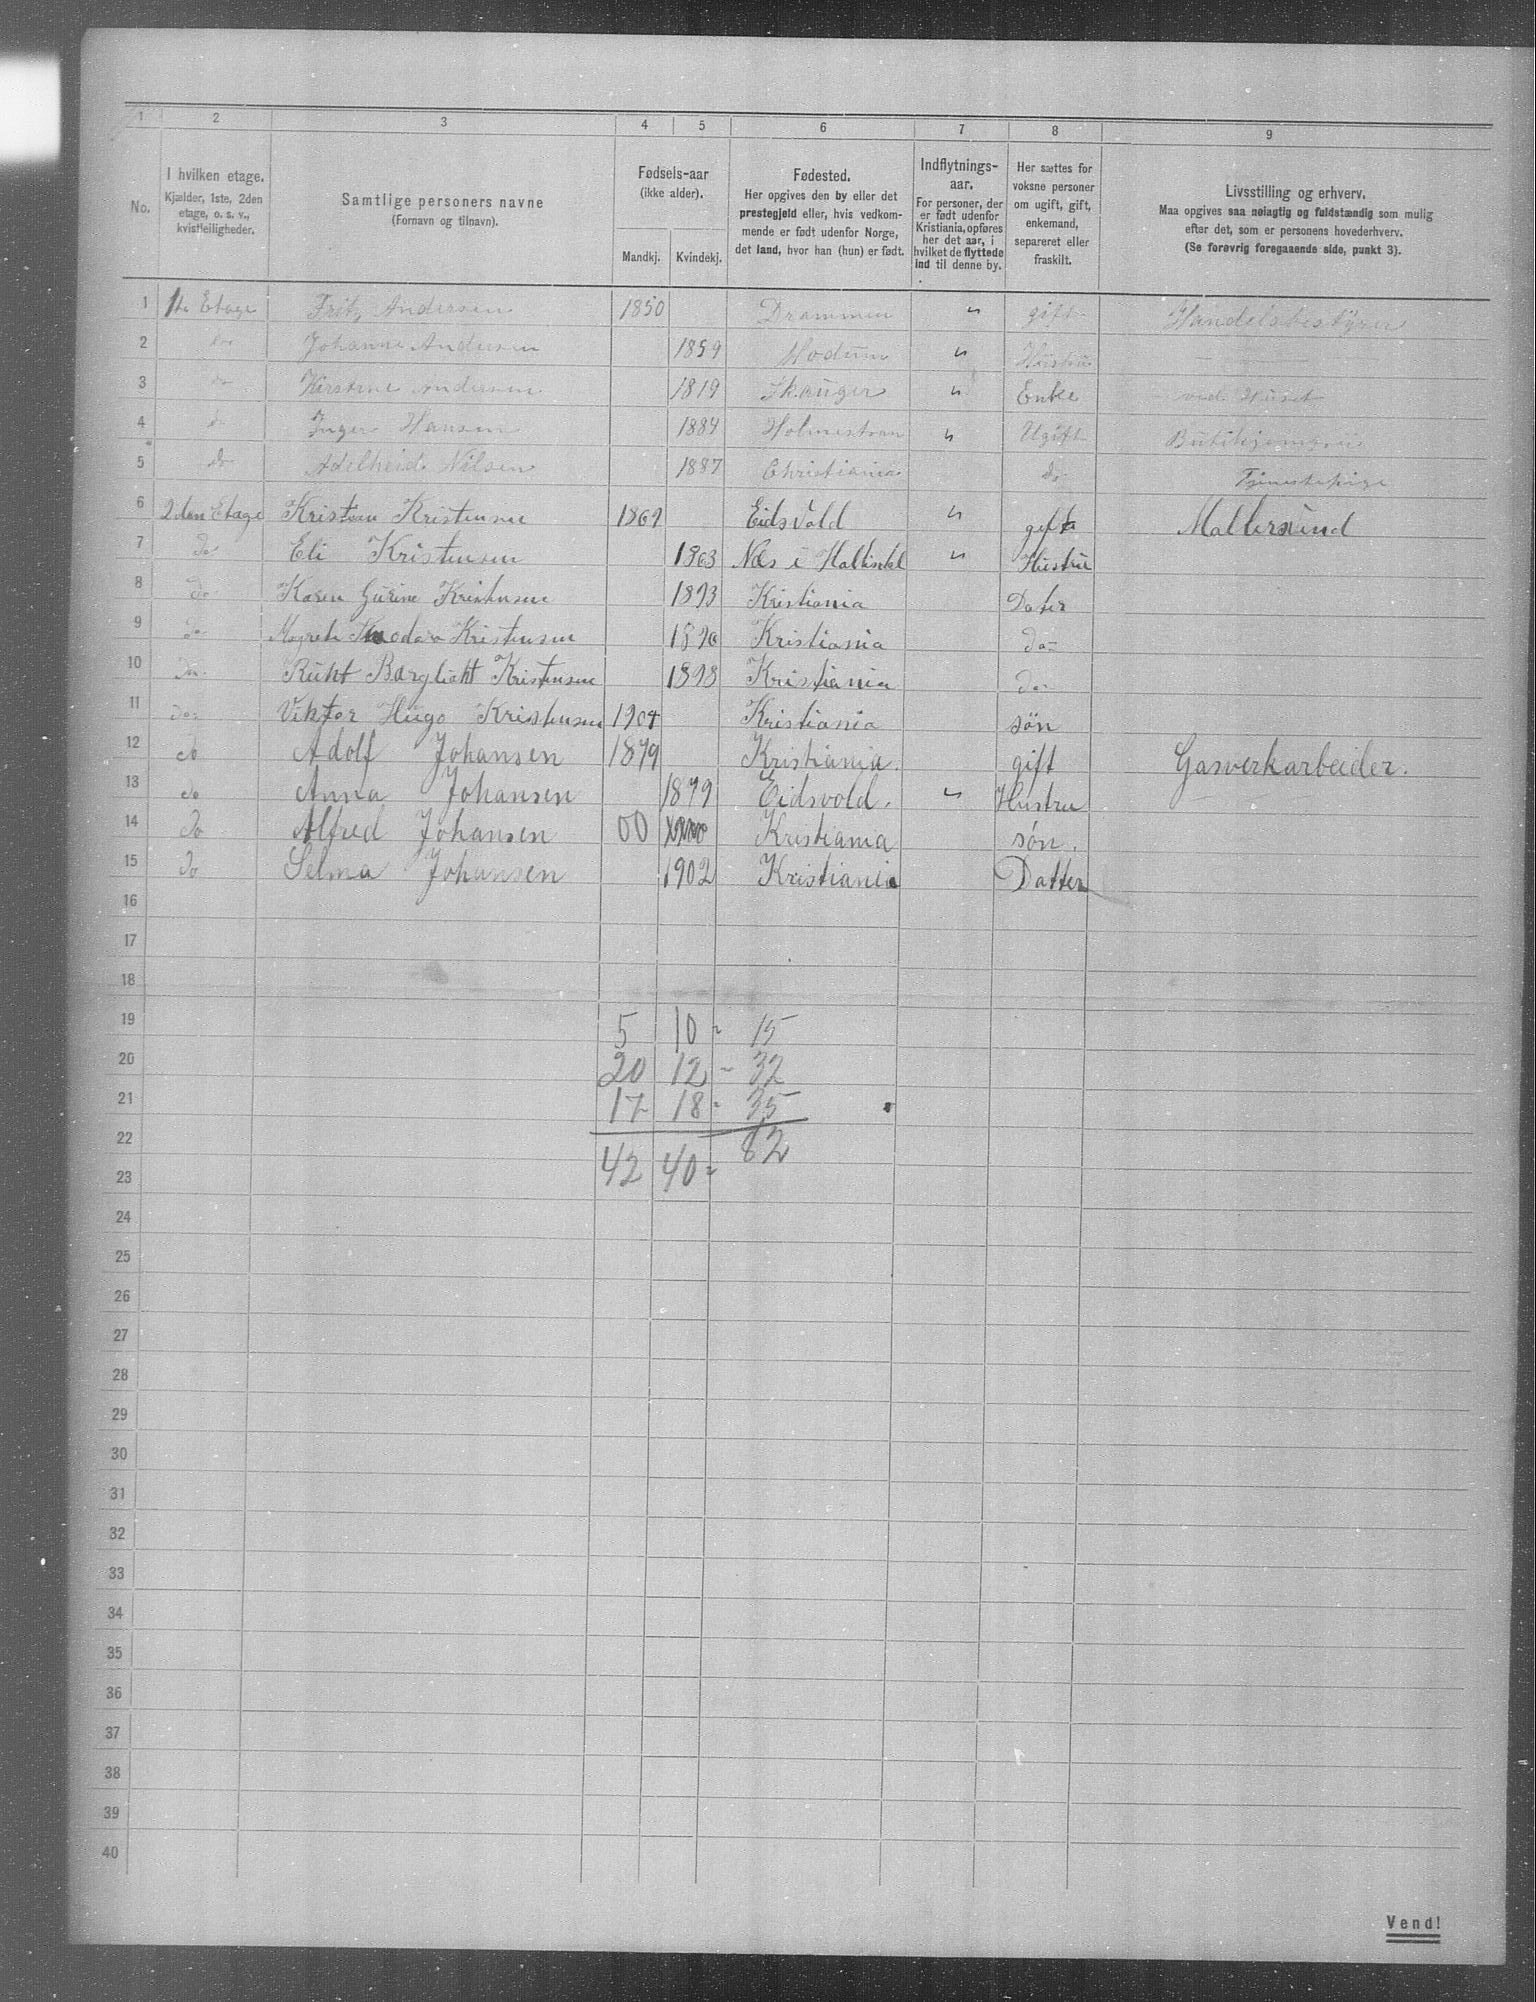 1 2 3 4 5 6 7 8 9
No.
I hvilken etage.
Kjælder, 1ste, 2den
etage, o. s. v.,
kvistleiligheder.
Samtlige personers navne
(Fornavn og tilnavn).
Fødsels-aar
(ikke alder).
Mandkj. Kvindekj.
Fødested.
Her opgives den by eller det
prestegjeld eller, hvis vedkom-
mende er født udenfor Norge,
det land, hvor han (hun) er født.
Indflytnings-
aar.
For personer, der
er født udenfor
Kristiania, opføres
her det aar, i
hvilket de flyttede
ind til denne by.
Her sættes for
voksne personer
om ugift, gift,
enkemand,
separeret eller
fraskilt.
Livsstilling og erhverv.
Maa opgives saa nøiagtig og fuldstændig som mulig
efter det, som er personens hovederhverv.
(Se forøvrig foregaaende side, punkt 3).
1 1ste Etage Fritz Andersen 1850 Drammen " gift Handelsbestyrer
2 do Johanne Andersen 1859 Modum " Hustru
3 do Kirstine Andersen 1819 Skauger " Enke ved Huset
4 do Inger Hansen 1884 Holmestran " Ugift
5 do Adelheid Nilsen 1887 Christiania do Tjenestepige
6 2den Etage Kristian Kristensen 1869 Eidsvold " gift
7 Do Eli Kristensen 1863 Næs i " Hustru
8 Do Karen Gurine Kristensen 1893 Kristiania Dater
9 Do Kristensen 1896 Kristiania Do
10 Do Kristensen 1898 Kristiania Do
11 Do Viktor Hugo Kristensen 1904 Kristiania søn
12 do Adolf Johansen 1879 Kristiania. gift Gasverkarbeider.
13 do Anna Johansen 1879 Eidsvold. " Hustru
14 Do Alfred Johansen 00 Kristiania søn.
15 Do Selma Johansen 1902 Kristiania Datter
16
17
18
19 5 10 = 15
20 20 12 - 32
21 17 18 = 35
22 82
23 42 40 =
24
25
26
27
28
29
30
31
32
33
34
35
36
37
38
39
40
Vend!